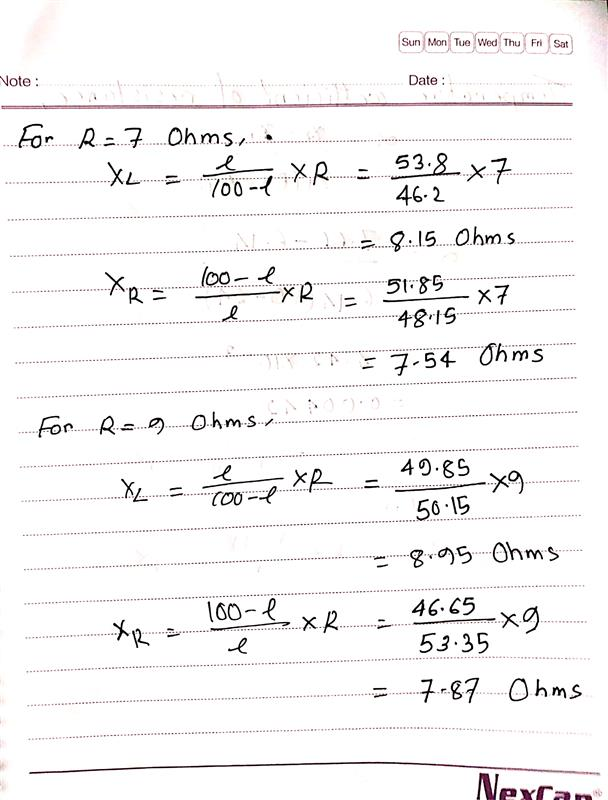 Sun Mon Tue Wed Thu Fri Sat
Note : Date :
For R = 7 Ohms,
XL = l/100-l × R = 53.8/46.2 × 7
= 8.15 Ohms
XR = 100-l/l × R = 51.85/48.15 × 7
= 7.54 Ohms
For R = 9 Ohms,
XL = l/100-l × R = 49.85/50.15 × 9
= 8.95 Ohms
XR = 100-l/l × R = 46.65/53.35 × 9
= 7.87 Ohms